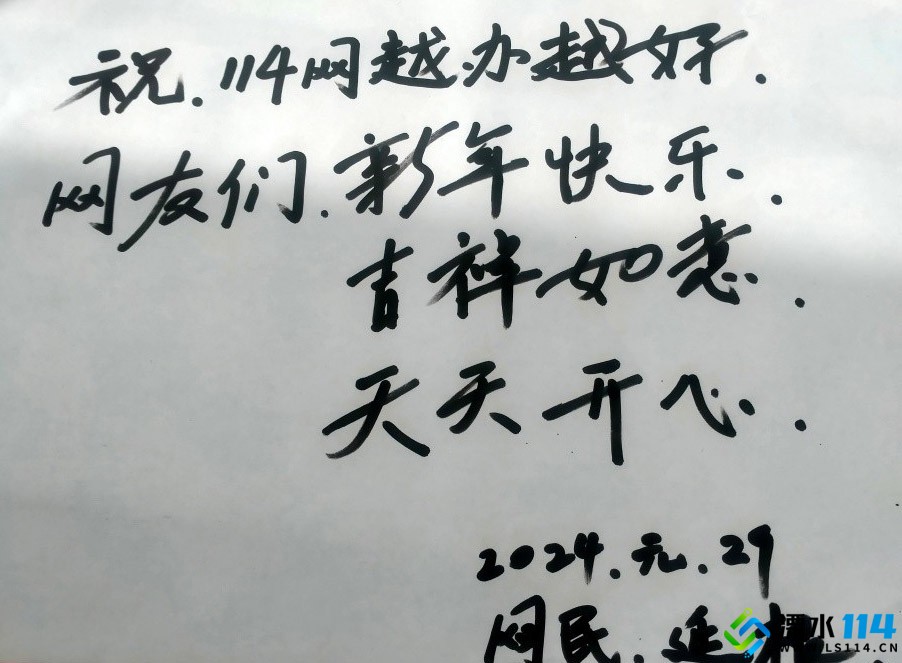 祝.114网越办越好.
网友们.新年快乐.
吉祥如意.
天天开心.
2024.元.29
网民.延
溧水114
LS114.CN